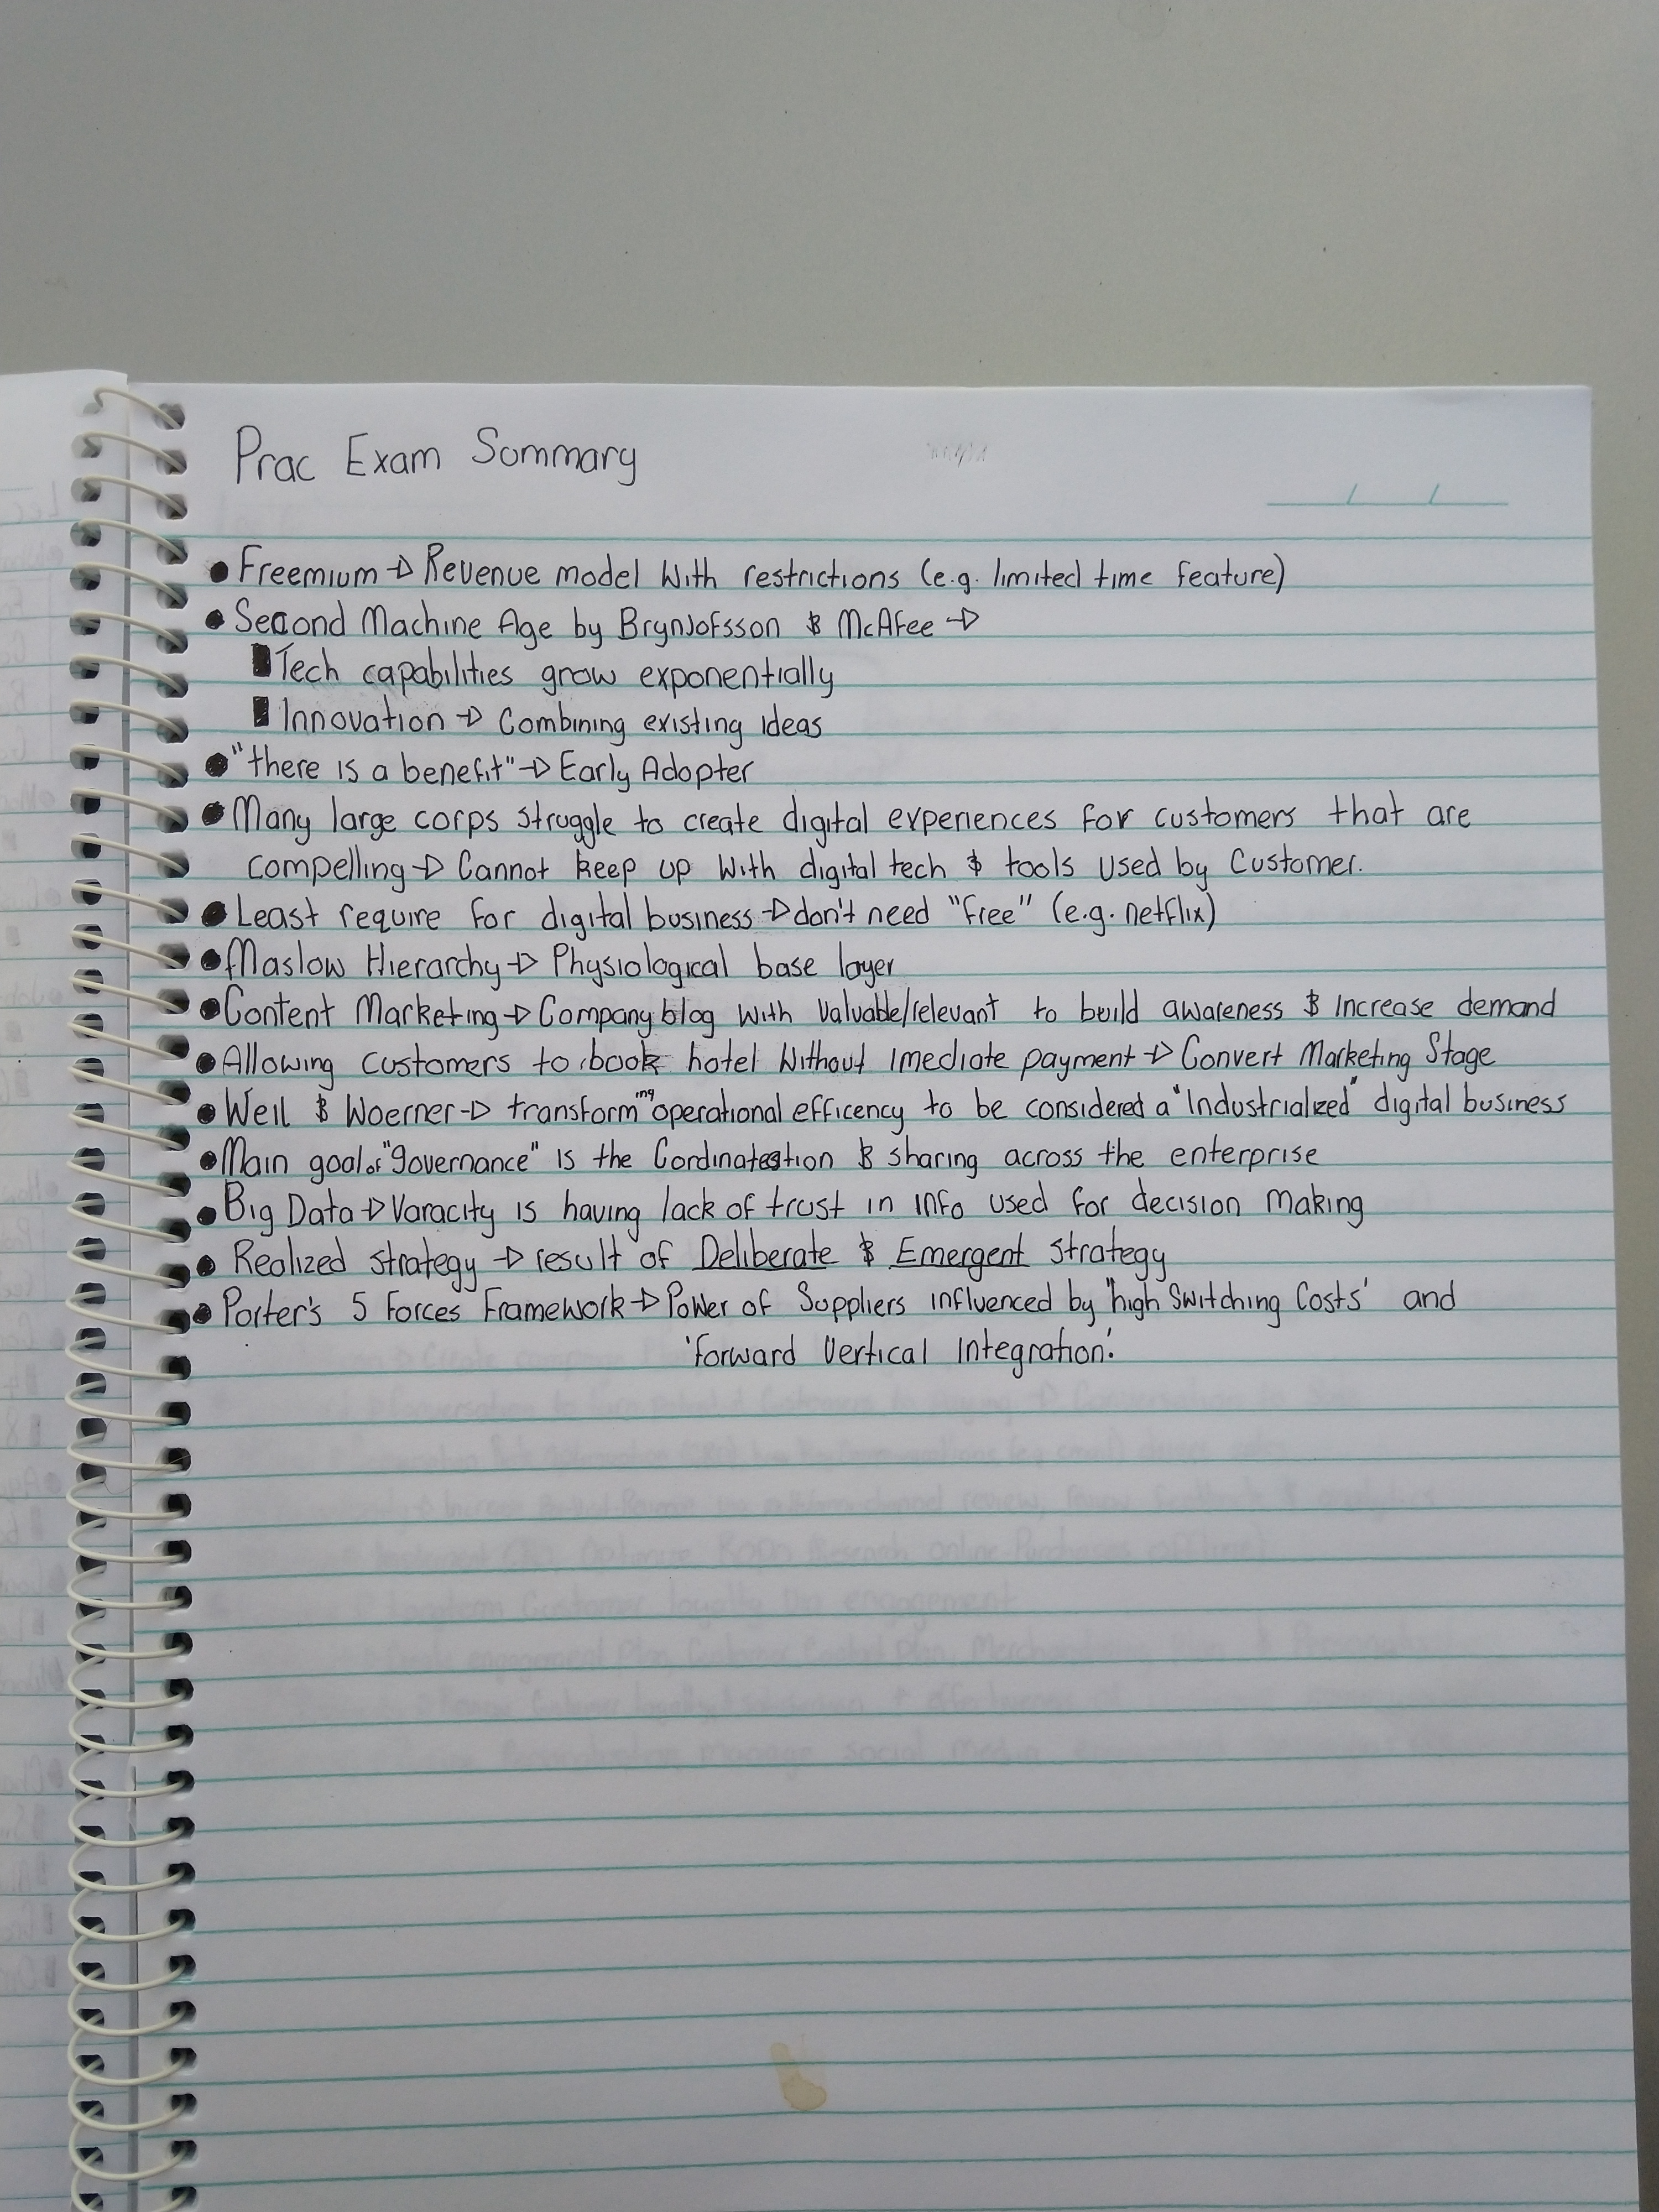 Prac Exam Summary
• Freemium → Revenue model with restrictions (e.g. limited time feature)
• Second Machine Age by Brynjofsson & McAfee →
▮ Tech capabilities grow exponentially
▮ Innovation → Combining existing ideas
• "there is a benefit" → Early Adopter
• Many large corps struggle to create digital experiences for customers that are
compelling → Cannot keep up with digital tech & tools used by customer.
• Least require for digital business → don't need "free" (e.g. netflix)
• Maslow Hierarchy → Physiological base layer
• Content Marketing → Company blog with valuable/relevant to build awareness & increase demand
• Allowing customers to book hotel without imediate payment → Convert Marketing Stage
• Weil & Woerner → transforming operational efficency to be considered a "Industrialized" digital business
• Main goal of "governance" is the Cordination & sharing across the enterprise
• Big Data → Varacity is having lack of trust in info used for decision making
• Realized strategy → result of Deliberate & Emergent strategy
• Porter's 5 Forces Framework → Power of Suppliers influenced by "high Switching Costs' and
'forward Vertical Integration.'